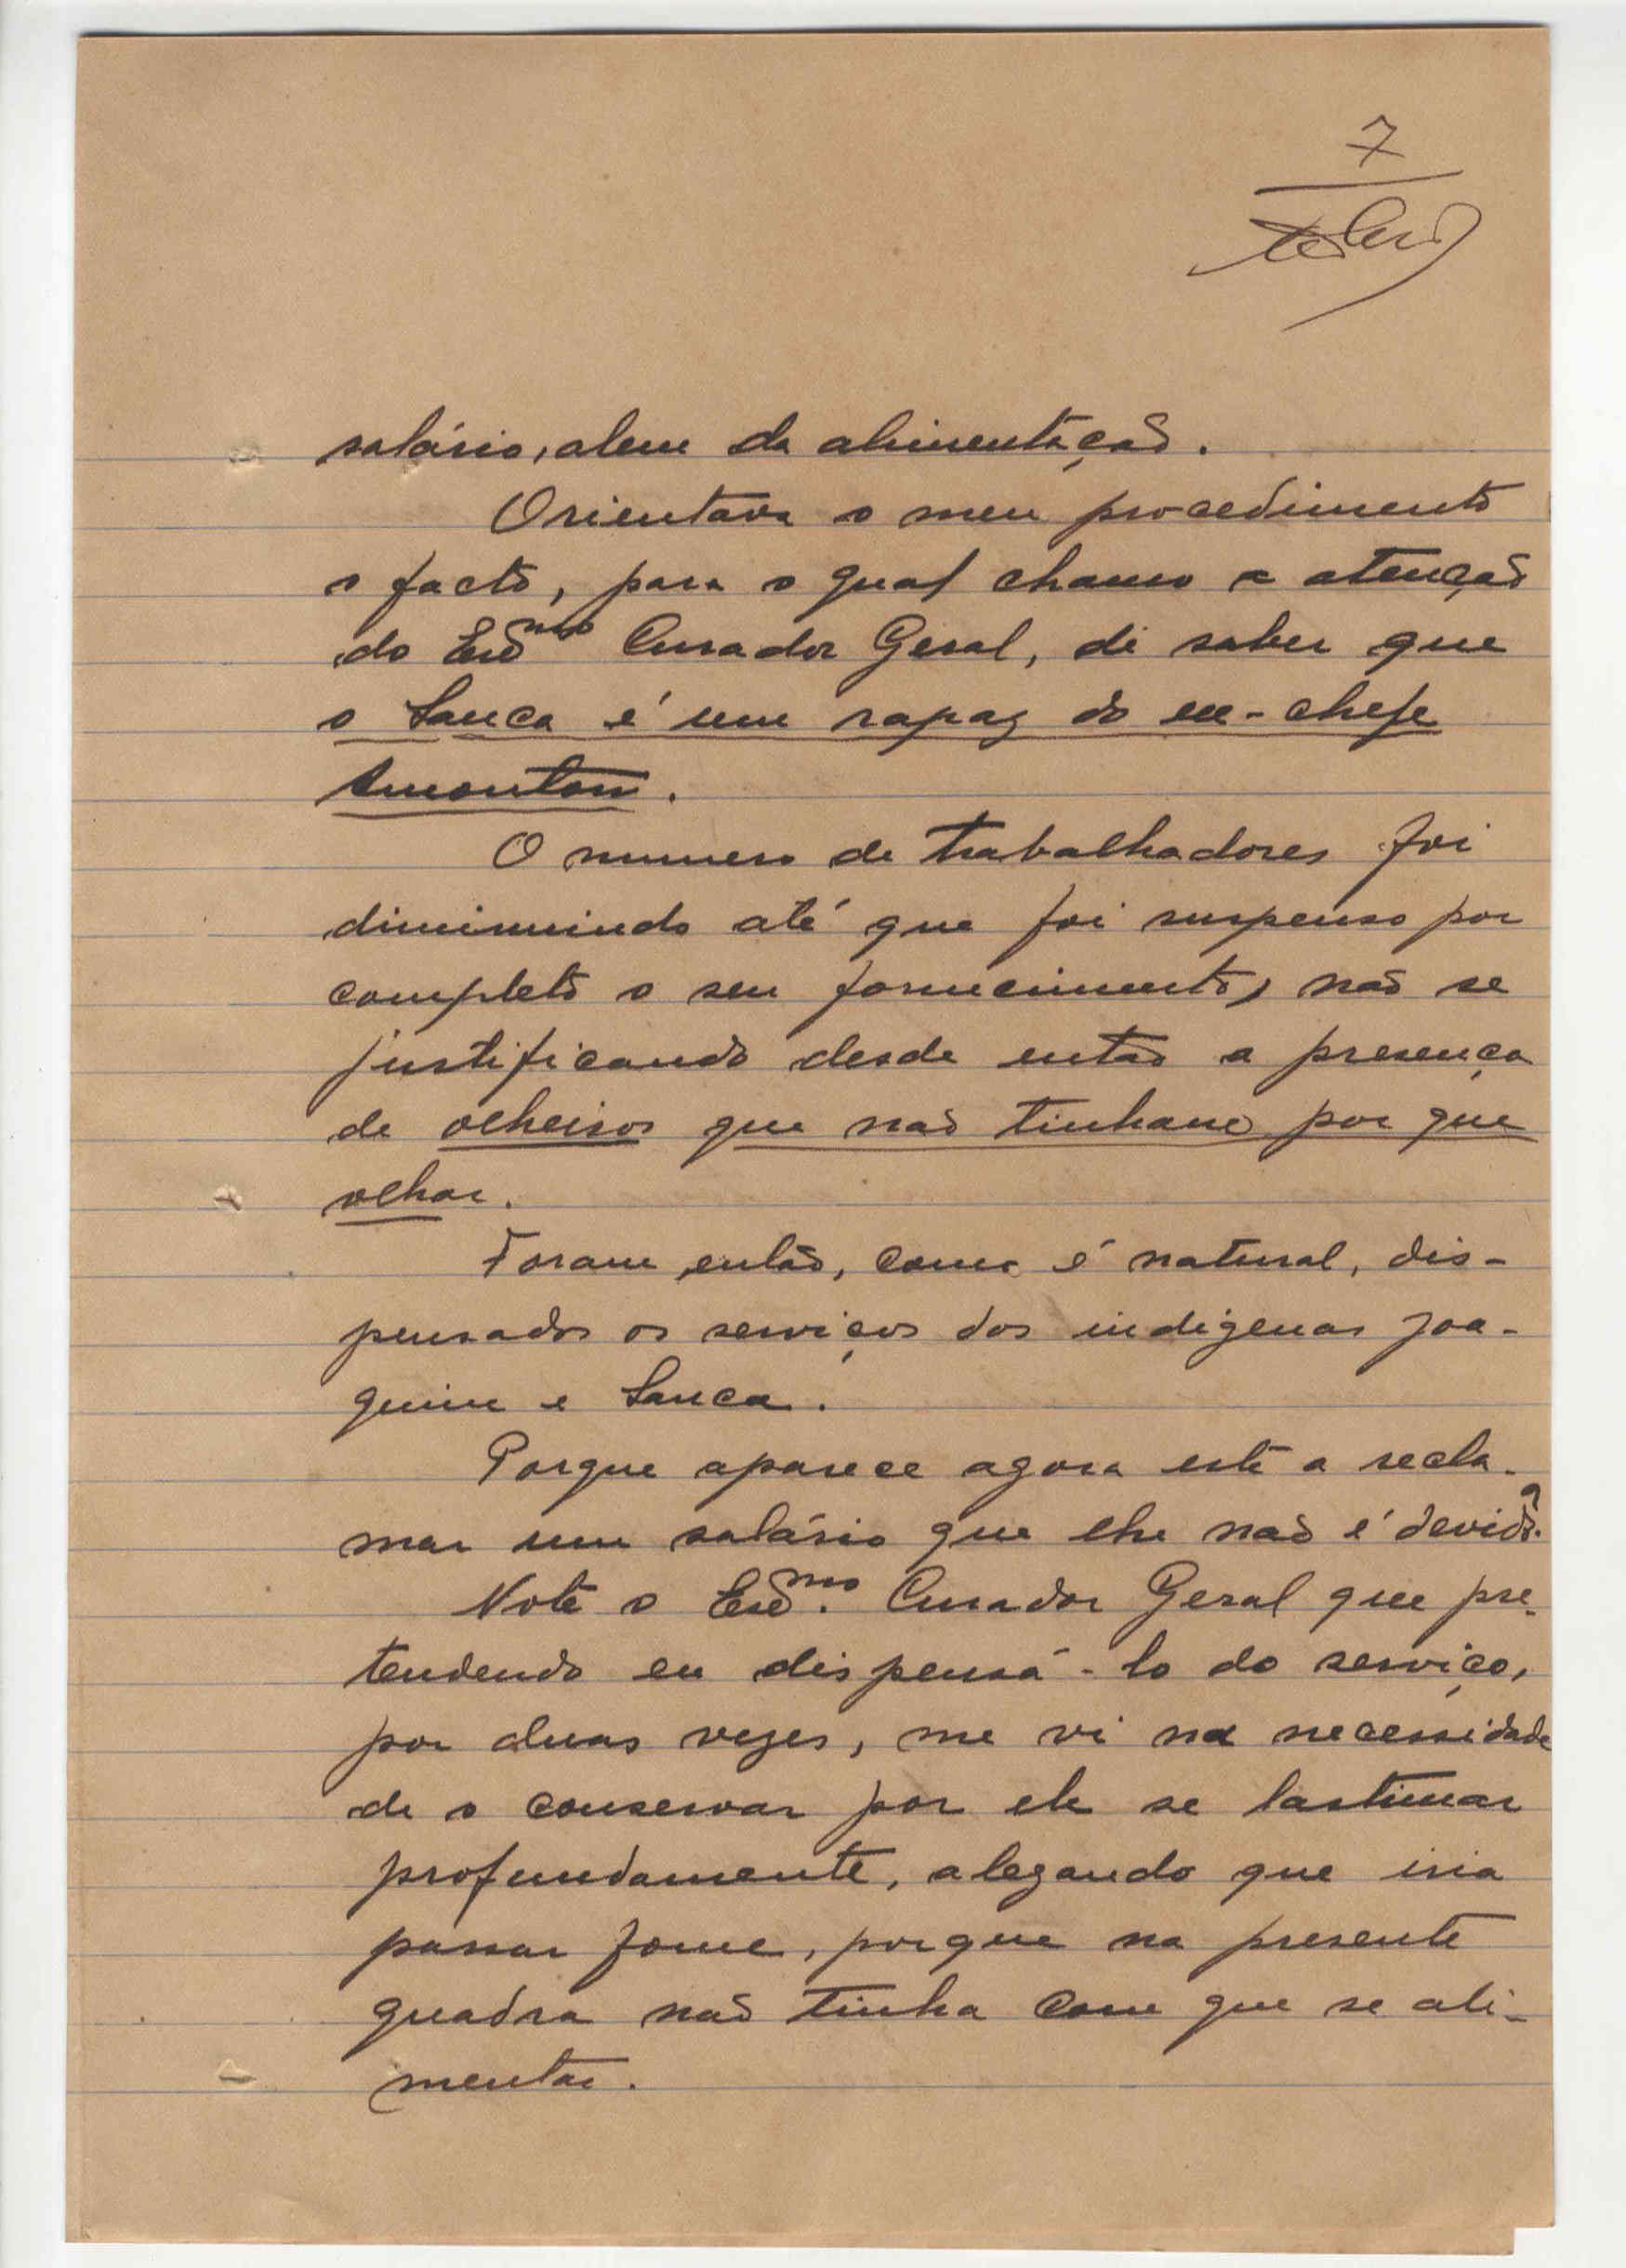 7
salário, alem da alimentação.
Orientava o meu procedimento
o facto, para o qual chamo a atenção
do Exmo Curador Geral, de saber que
o Sanca é um rapaz do ex-chefe
.
O numero de trabalhadores foi
diminuindo até que foi suspenso por
completo o seu fornecimento, não se
justificando desde então a presença
de olheiros que não tinham por que
olhar.
Foram, então, como é natural, dis-
pensados os serviços dos indigenas Joa-
quim e Sanca.
Porque aparece agora este a recla-
mar um salário que lhe não é devido?
Note o Exmo. Curador Geral que pre-
tendendo eu dispensá-lo do serviço,
por duas vezes, me vi na necessidade
de o conservar por ele se lastimar
profundamente, alegando que iria
passar fome, porque na presente
quadra não tinha com que se ali-
mentar.